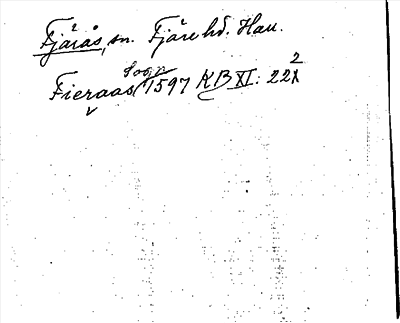 Fjärås, sn. Fjäre hd. Hall.
Sogn
Fieraas 1597 KB XI: 22 2